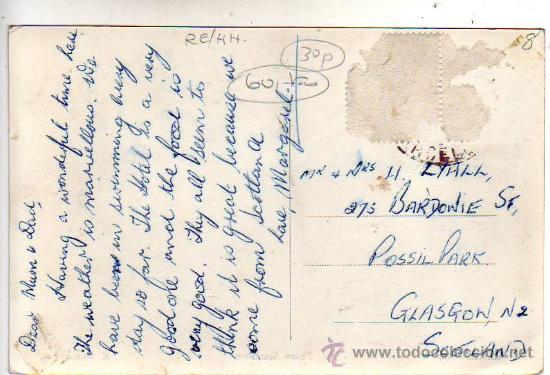 RE/HH.
30p
60
8
Dear Mum & Dad,
Having a wonderful time here
The weather is marvellous. We
have been in swimming every
day so far. The Hotel is a very
good one and the food is
very good. They all seem to
think it is great because we
come from Scotland
Love, Margaret.
Mr & Mrs. H. LYALL,
275 BARDOWIE ST,
POSSILPARK
GLASGOW, N2
SCOTLAND
todocoleccion.net